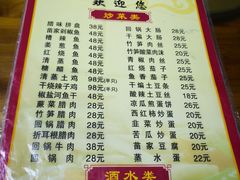 欢迎您
炒菜类
腊味拼盘 38元
苗家剁椒鱼 48元
糟辣鱼 48元
姜葱鱼 48元
红烧鱼 48元
清蒸鱼 48元
糖醋鱼 48元
清蒸土鸡 98元(半只)
干烧辣子鸡 98元(半只)
椒盐河鱼干 48元
蕨菜腊肉 28元
竹笋腊肉 28元
折耳根腊肉 28元
回锅牛肉 38元
回锅腊肉 28元
回锅肉 28元
干锅大肠 28元
竹笋肉丝 25元
竹笋酸菜肉沫 20元
青椒肉丝 25元
红烧茄子 25元
鱼香茄子 25元
青椒炒蛋 22元
凉瓜煎蛋饼 26元
西红柿炒蛋 20元
韭菜炒蛋 20元
苦瓜炒蛋 20元
苗家豆腐 20元
蒸水蛋 22元
酒水类